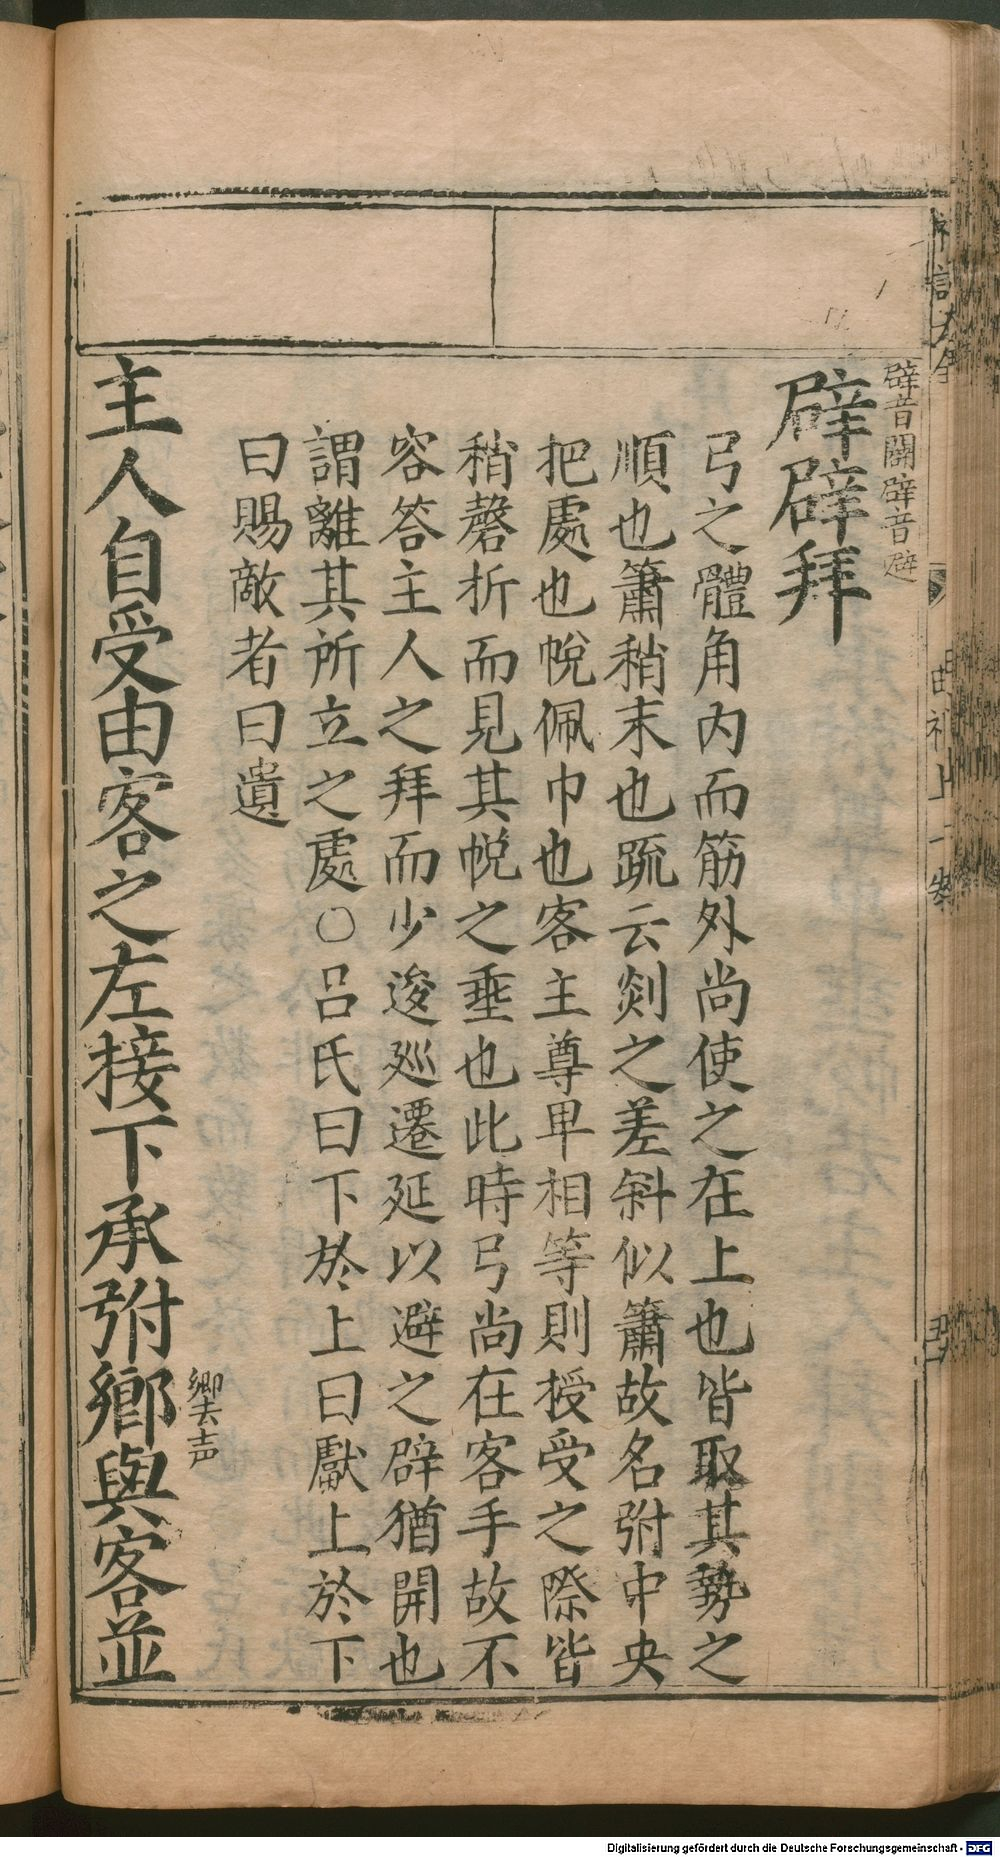 辟音闢辟音避
辟辟拜
弓之體角内而筋外尚使之在上也皆取其勢之
順也簫稍末也疏云剡之差斜似簫故名弣中央
把處也帨佩巾也客主尊卑相等則授受之際皆
稍磬折而見其帨之垂也此時弓尚在客手故不
容答主人之拜而少逡廵遷延以避之辟猶開也
謂離其所立之處○吕氏曰下於上曰獻上於下
曰賜敵者曰遺
鄉去声
主人自受由客之左接下承弣鄉與客並
Digitalisierung gefördert durch die Deutsche Forschungsgemeinschaft - DFG